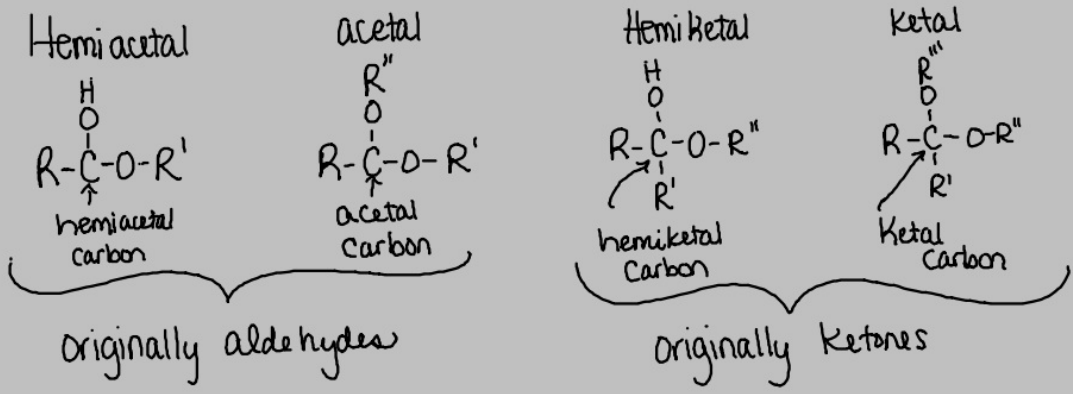 Hemiacetal
H
O
R-C-O-R'
hemiacetal
carbon
acetal
R"
O
R-C-O-R'
acetal
carbon
originally aldehydes
Hemiketal
H
O
R-C-O-R"
R'
hemiketal
carbon
ketal
R'''
O
R-C-O-R"
R'
Ketal
Carbon
originally ketones